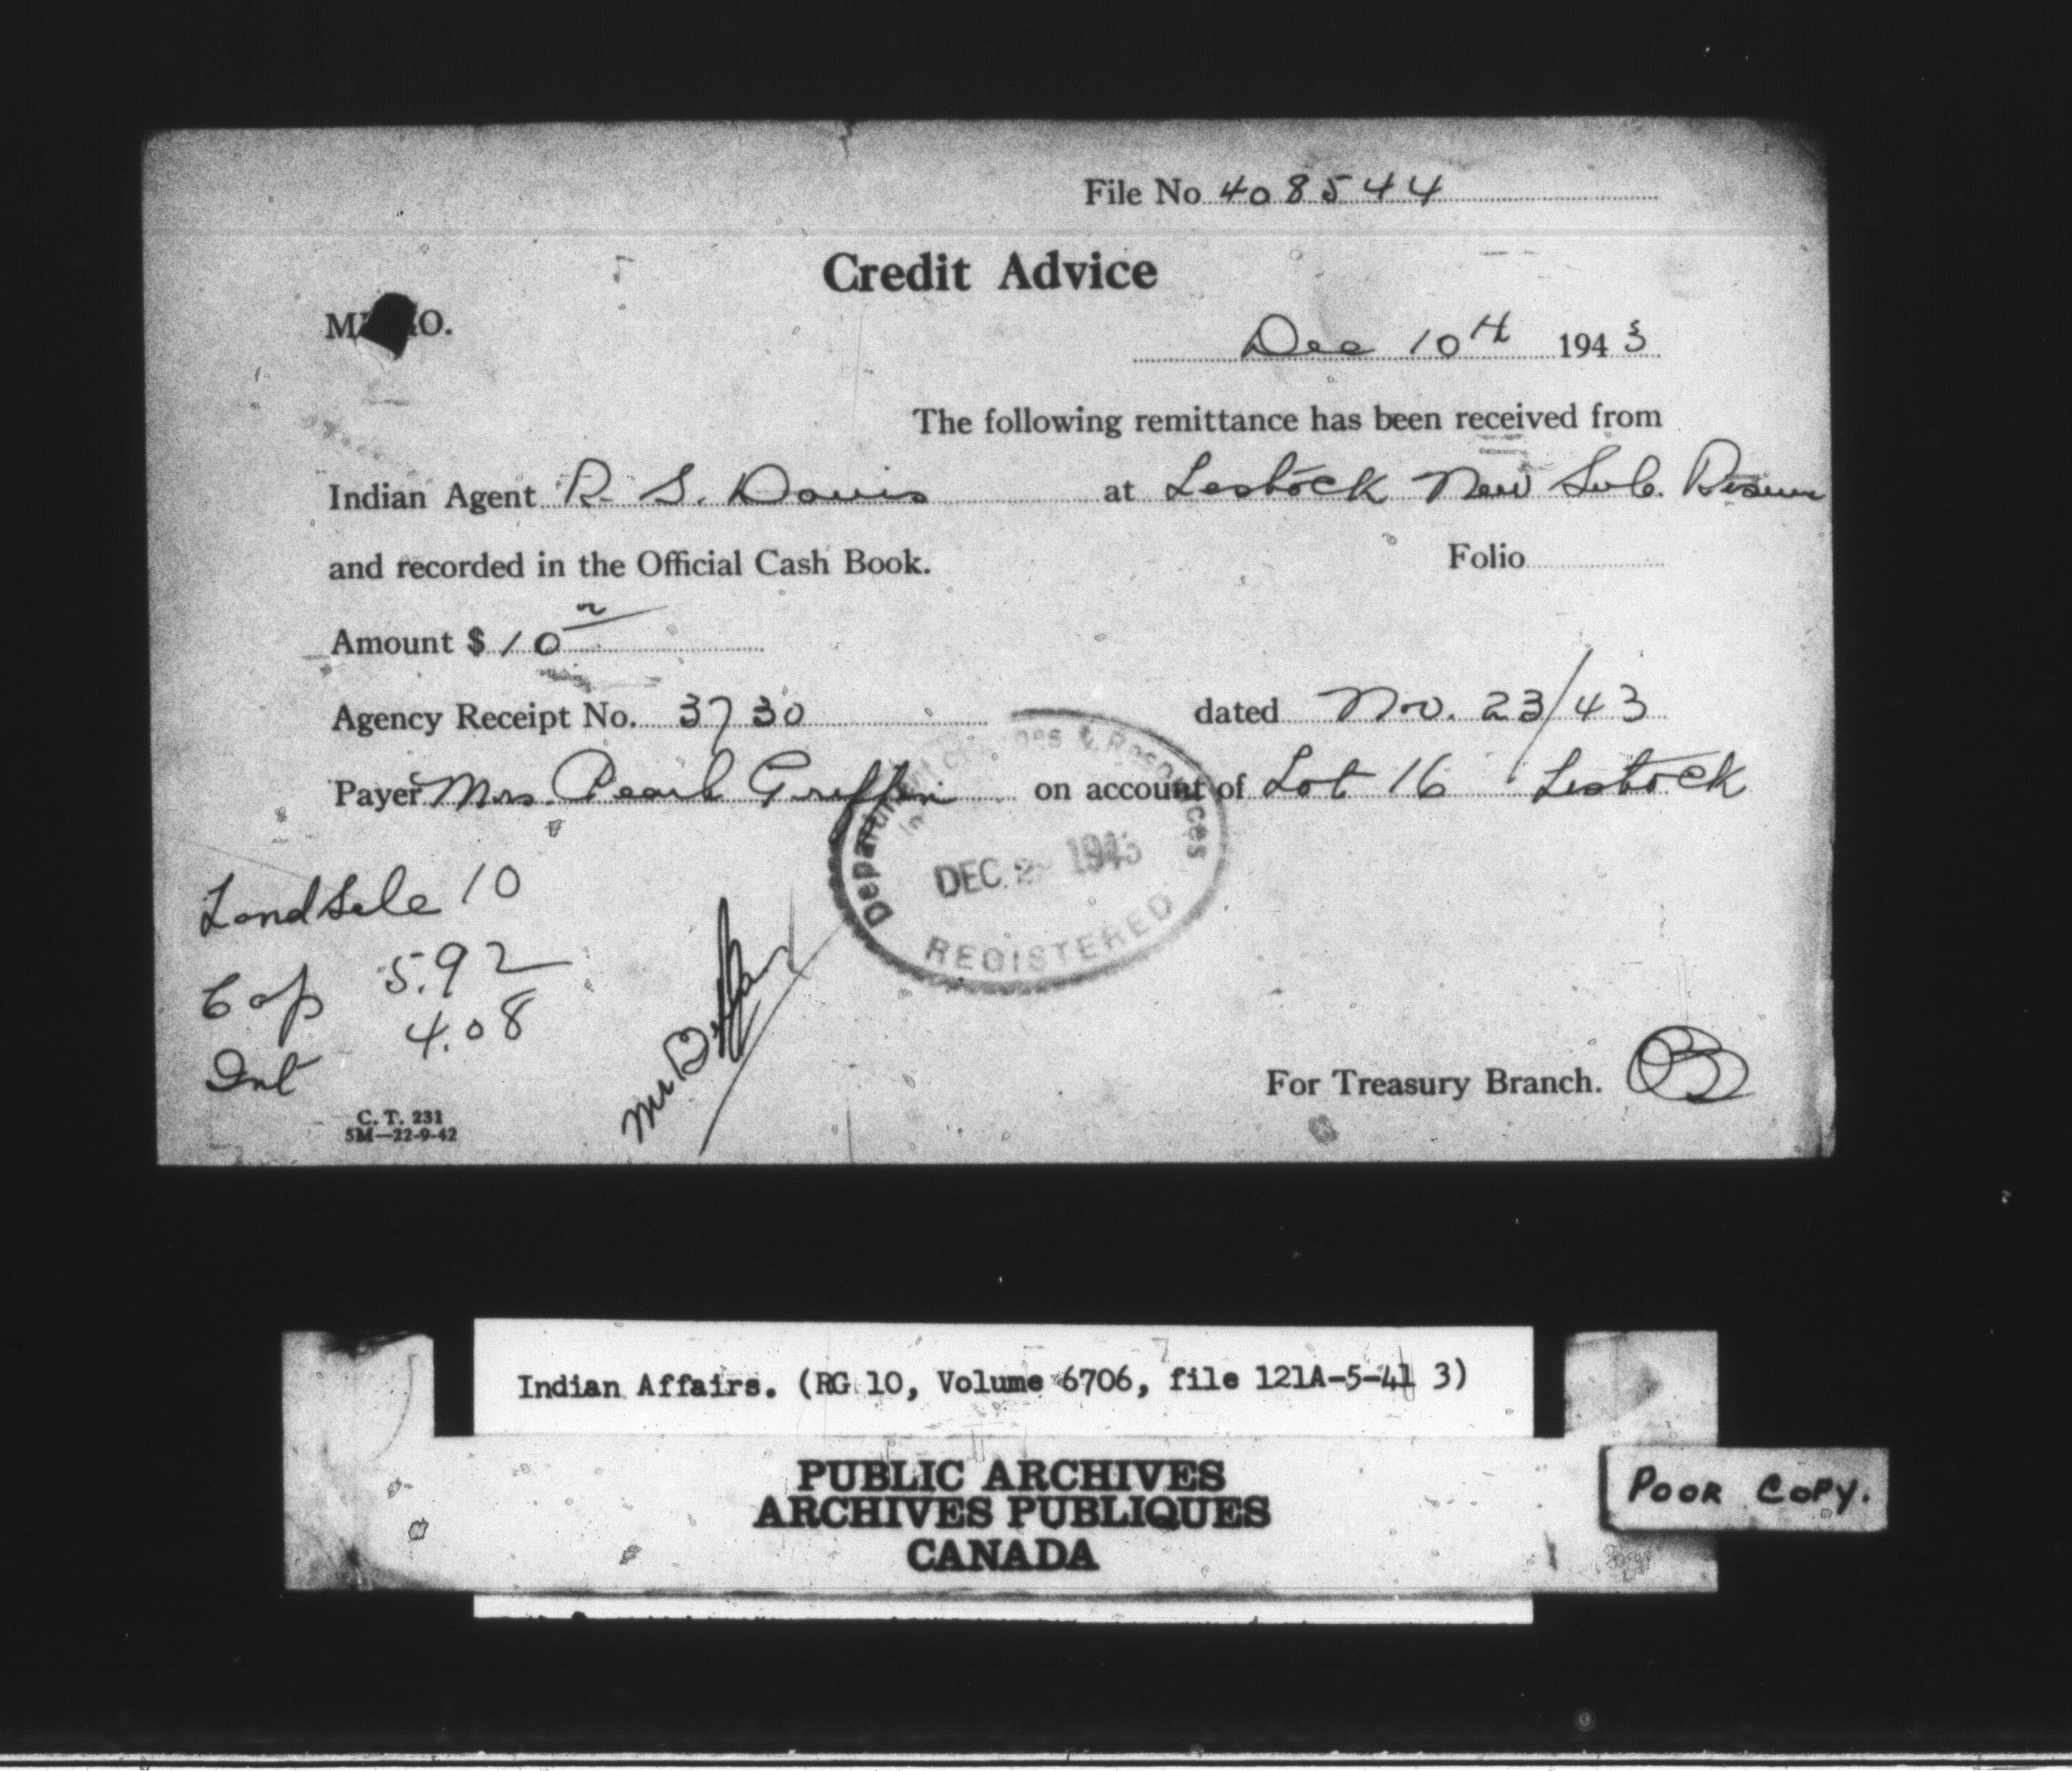 File No 408544
Credit Advice
MEMO.
Dec 10th 1943
The following remittance has been received from
Indian Agent R. S. Davis at Lestock New Sub.
and recorded in the Official Cash Book. Folio
Amount $ 10
Agency Receipt No. 3730 dated Nov. 23/43
Payer Mrs. Pearl Griffin on account of Lot 16 Lestock
Department of Mines & Resources
DEC 1943
REGISTERED
Land Sale 10
Cap 5.92
Int 4.08
Mr.
For Treasury Branch.
C. T. 231
5M—22-9-42
Indian Affairs. (RG 10, Volume 6706, file 121A-5-41 3)
PUBLIC ARCHIVES
ARCHIVES PUBLIQUES
CANADA
POOR COPY.